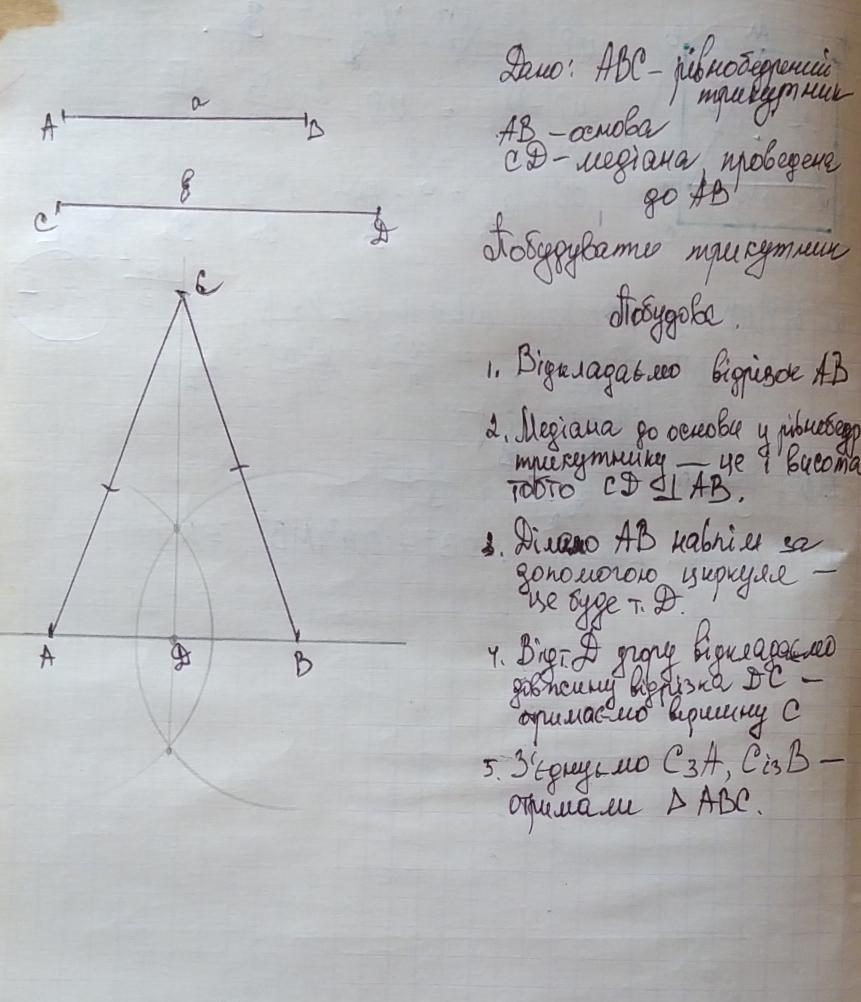 a
A B
b
C D
C
A D B
Дано: ABC – рівнобедрений
трикутник
AB – основа
CD – медіана, проведена
до AB
Побудувати трикутник
Побудова.
1. Відкладаємо відрізок AB
2. Медіана до основи у рівнобедр
трикутнику — це і висота
тобто CD ⊥ AB.
3. Ділимо AB навпіл за
допомогою циркуля —
це буде т. D.
4. Від т. D угору відкладаємо
довжину відрізка DC —
отримаємо вершину C
5. З'єднуємо C з A, C із B —
отримали Δ ABC.